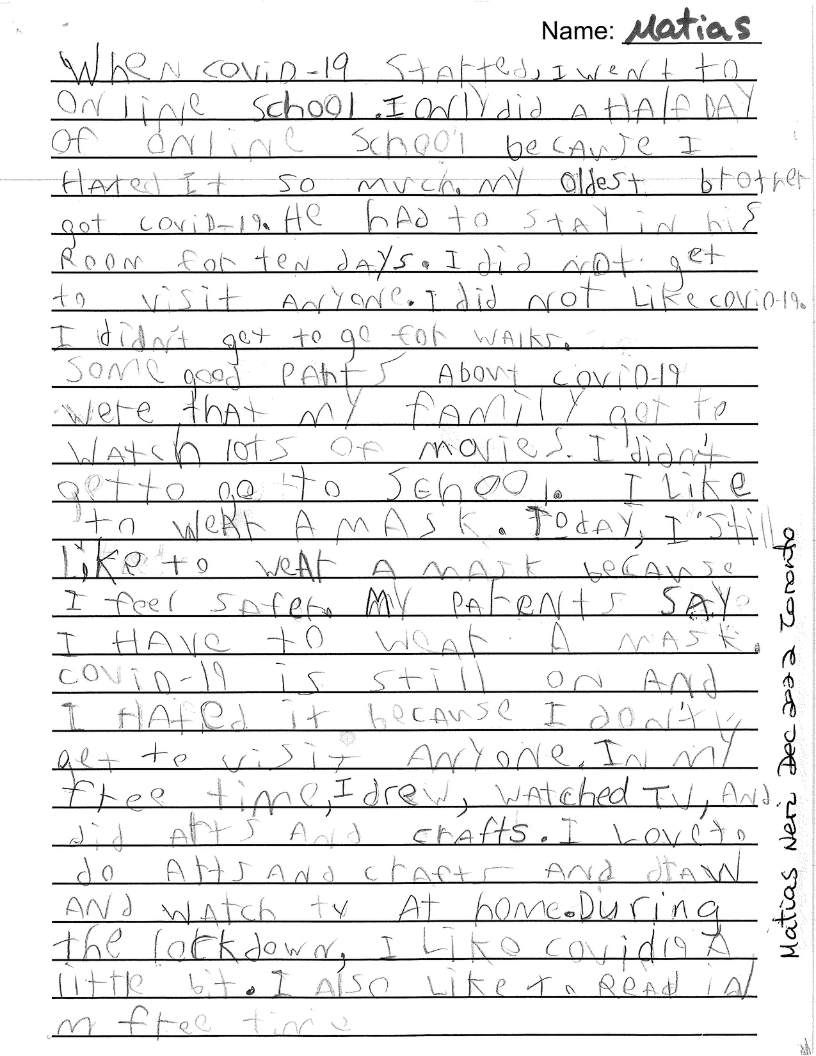 Name: Matias
When covid-19 started, I went to
online school. I only did a half day
of online school because I
hated it so much. my oldest brother
got covid-19. He had to stay in his
Room for ten days. I did not get
to visit anyone. I did not like covid-19.
I didn't get to go for walks.
some good parts about covid-19
were that my family got to
watch lots of movies. I didn't
get to go to school. I like
to wear a mask. Today, I still
like to wear a mask because
I feel safer. My parents say
I have to wear a mask.
covid-19 is still on and
I hated it because I don't
get to visit anyone. In my
free time, I drew, watched TV, and
did arts and crafts. I love to
do arts and crafts and draw
and watch tv at home. During
the lockdown, I like covid19 a
little bit. I also like to read in
m free time
Matias Neri Dec 2022 Toronto